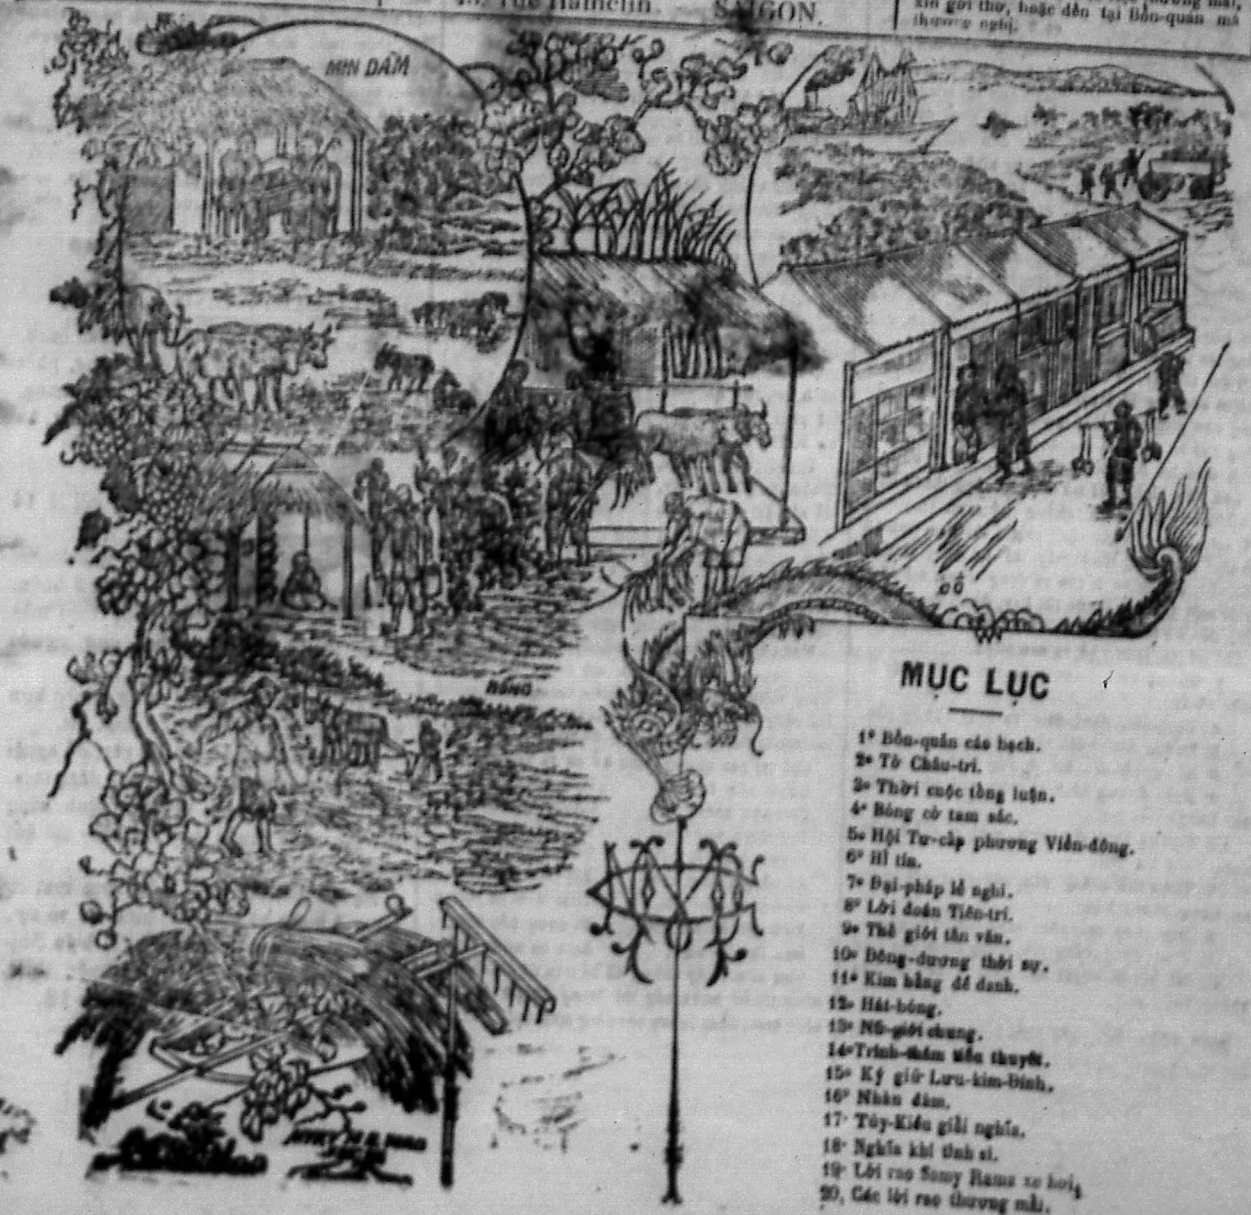 rue Hamelin. — SAIGON.
xin gởi thơ, hoặc đến tại Bổn-quán mà
thương nghị.
MIN ĐÀM
CỔ
NÔNG
MỤC LỤC
1º Bổn-quán cáo bạch.
2º Tờ Châu-tri.
3º Thời cuộc tổng luận.
4º Bóng cờ tam sắc.
5º Hội Tư-cấp phương Viễn-đông.
6º Hỉ tín.
7º Đại-pháp lễ nghi.
8º Lời đoán Tiên-tri.
9º Thế giới tân văn.
10º Đông-dương thời sự.
11º Kim bằng đề danh.
12º Hát-bóng.
13º Nữ-giới chung.
14º Trinh-thám tiểu thuyết.
15º Ký giữ Lưu-kim-Đính.
16º Nhàn đàm.
17º Túy-Kiều giải nghĩa.
18º Nghĩa khí tình si.
19º Lời rao Samy Rama xe hơi.
20, Các lời rao thương mãi.